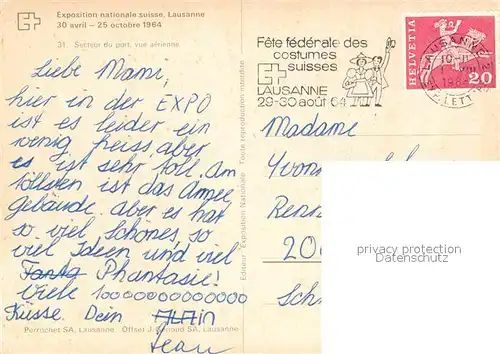 Exposition nationale suisse, Lausanne
30 avril – 25 octobre 1964
31. Secteur du port, vue aérienne
Liebe Mami,
hier in der EXPO
ist es leider ein
wenig heiss aber
es ist sehr toll. Am
töllsten ist das Armee
Gebäude. Aber es hat
so viel Schönes, so
viel Ideen und viel
Phantasie!
Viele 1000000000000
Küsse Dein
Jean
Perrochet SA, Lausanne Offset J. SA, Lausanne
Editeur: Exposition Nationale Toute reproduction interdite
Fête fédérale des
costumes
suisses
LAUSANNE
29-30 août 64
LAUSANNE
HELVETIA
20
Madame
Yvon
Renn
20
Sch
privacy protection
Datenschutz